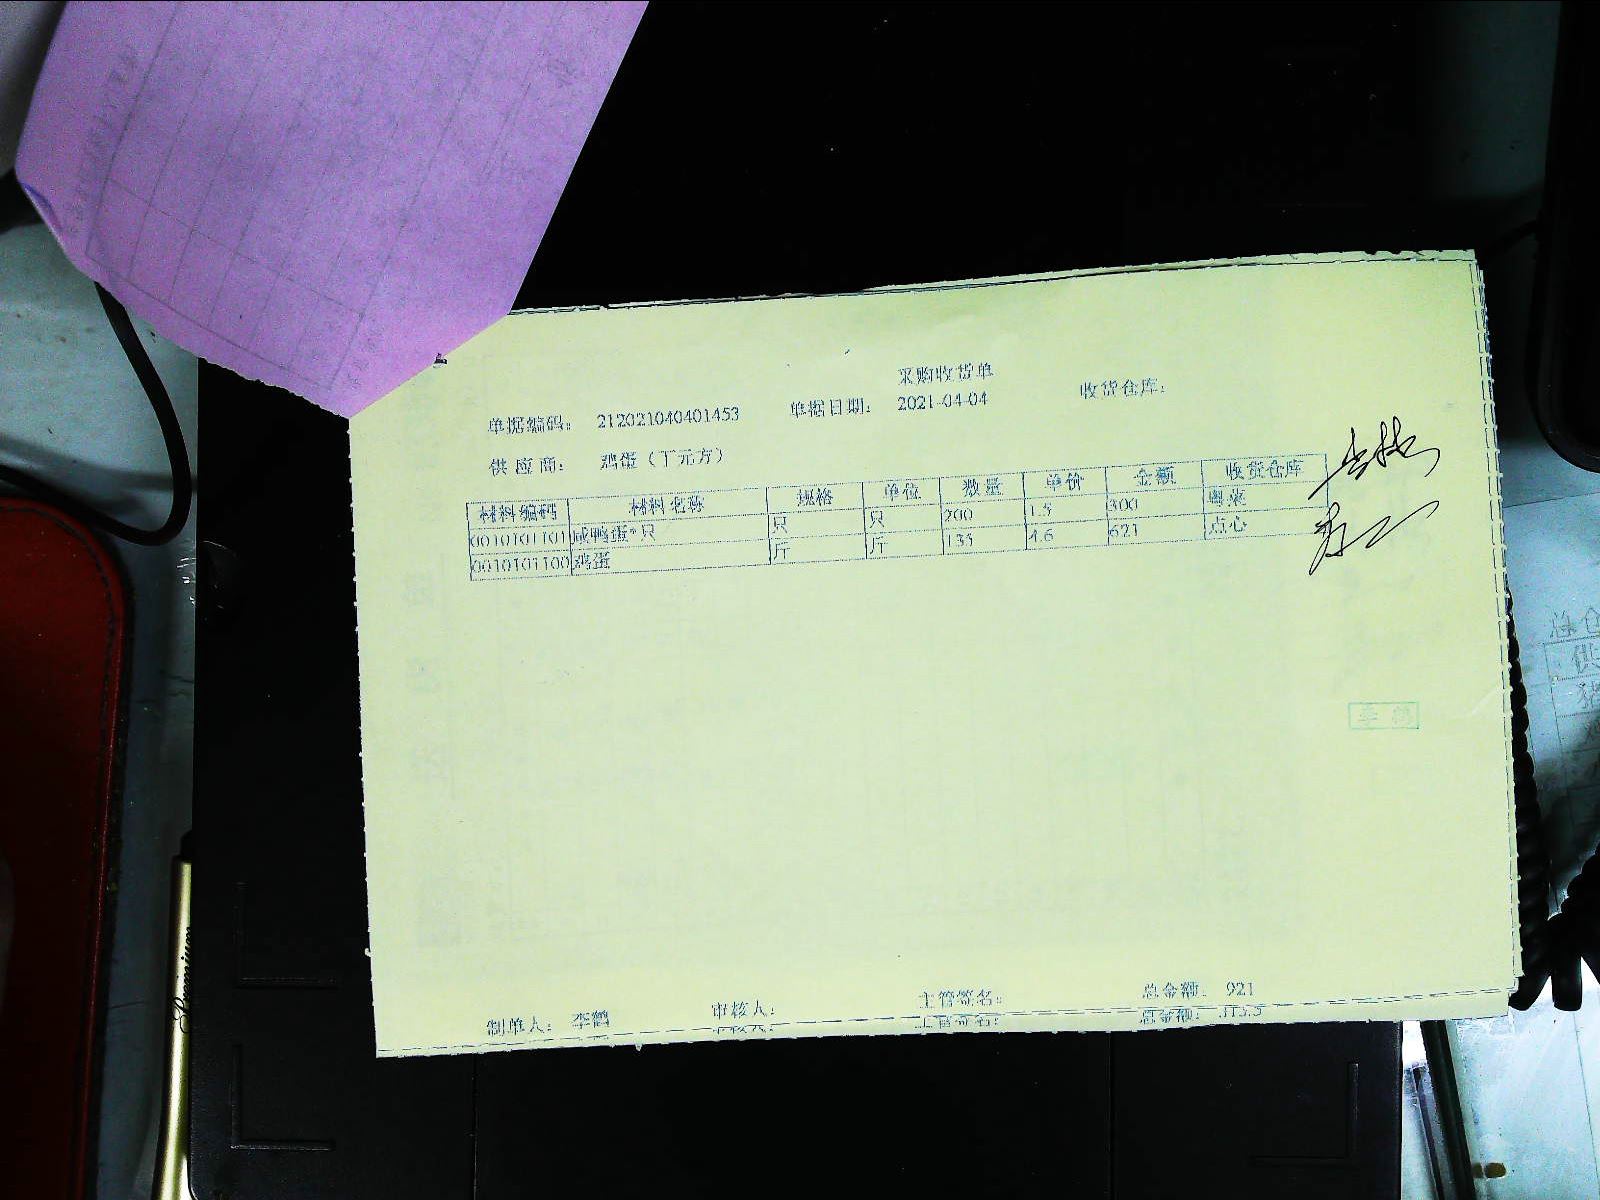 采购收货单
单据编码： 212021040401453 单据日期： 2021-04-04 收货仓库：
供应商： 鸡蛋（丁元方）
材料编码 材料名称 规格 单位 数量 单价 金额 收货仓库
0010101101 咸鸭蛋*只 只 只 200 1.5 300 粤菜
0010101100 鸡蛋 斤 斤 135 4.6 621 点心
李鹤
制单人： 李鹤 审核人： 主管签名： 总金额： 921
审核人： 主管签名： 总金额：
Premium
总仓
供